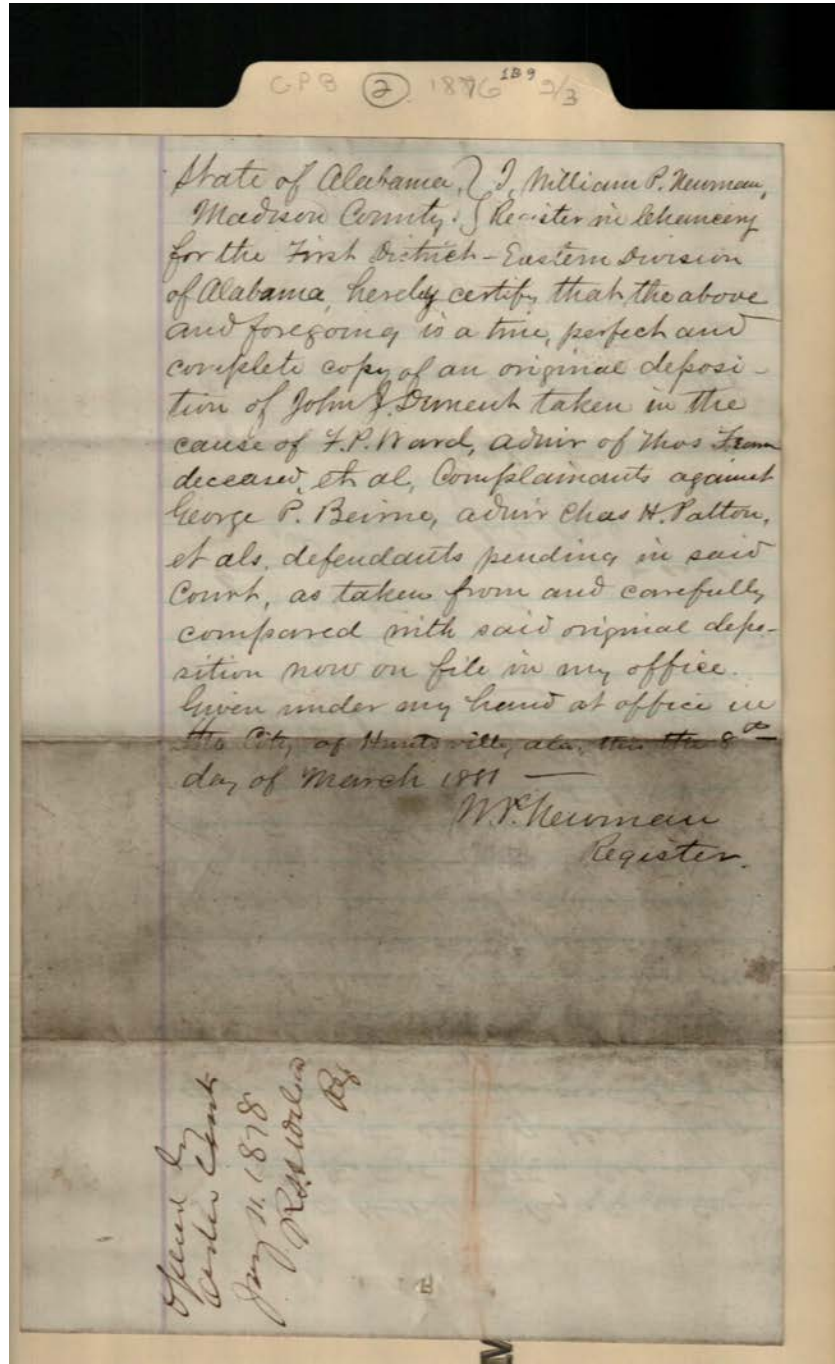 G.P.B. 2 1876 189 2/3
State of Alabama, } I, William P. Newman,
Madison County. } Register in Chancery
for the First District - Eastern Division
of Alabama, hereby certify that the above
and foregoing is a true, perfect and
complete copy of an original deposi-
tion of John J. taken in the
cause of F. P. Ward, admr of Thos
deceased, et al, Complainants against
George P. Beirne, admr Chas H. Patton,
et als, defendants pending in said
Court, as taken from and carefully
compared with said original depo-
sition now on file in my office.
Given under my hand at office in
the City of Huntsville, Ala, this the 8th
day of March 1881 —
W. P. Newman
Register.
Opened by
order Court
Jany 11. 1878
Reg